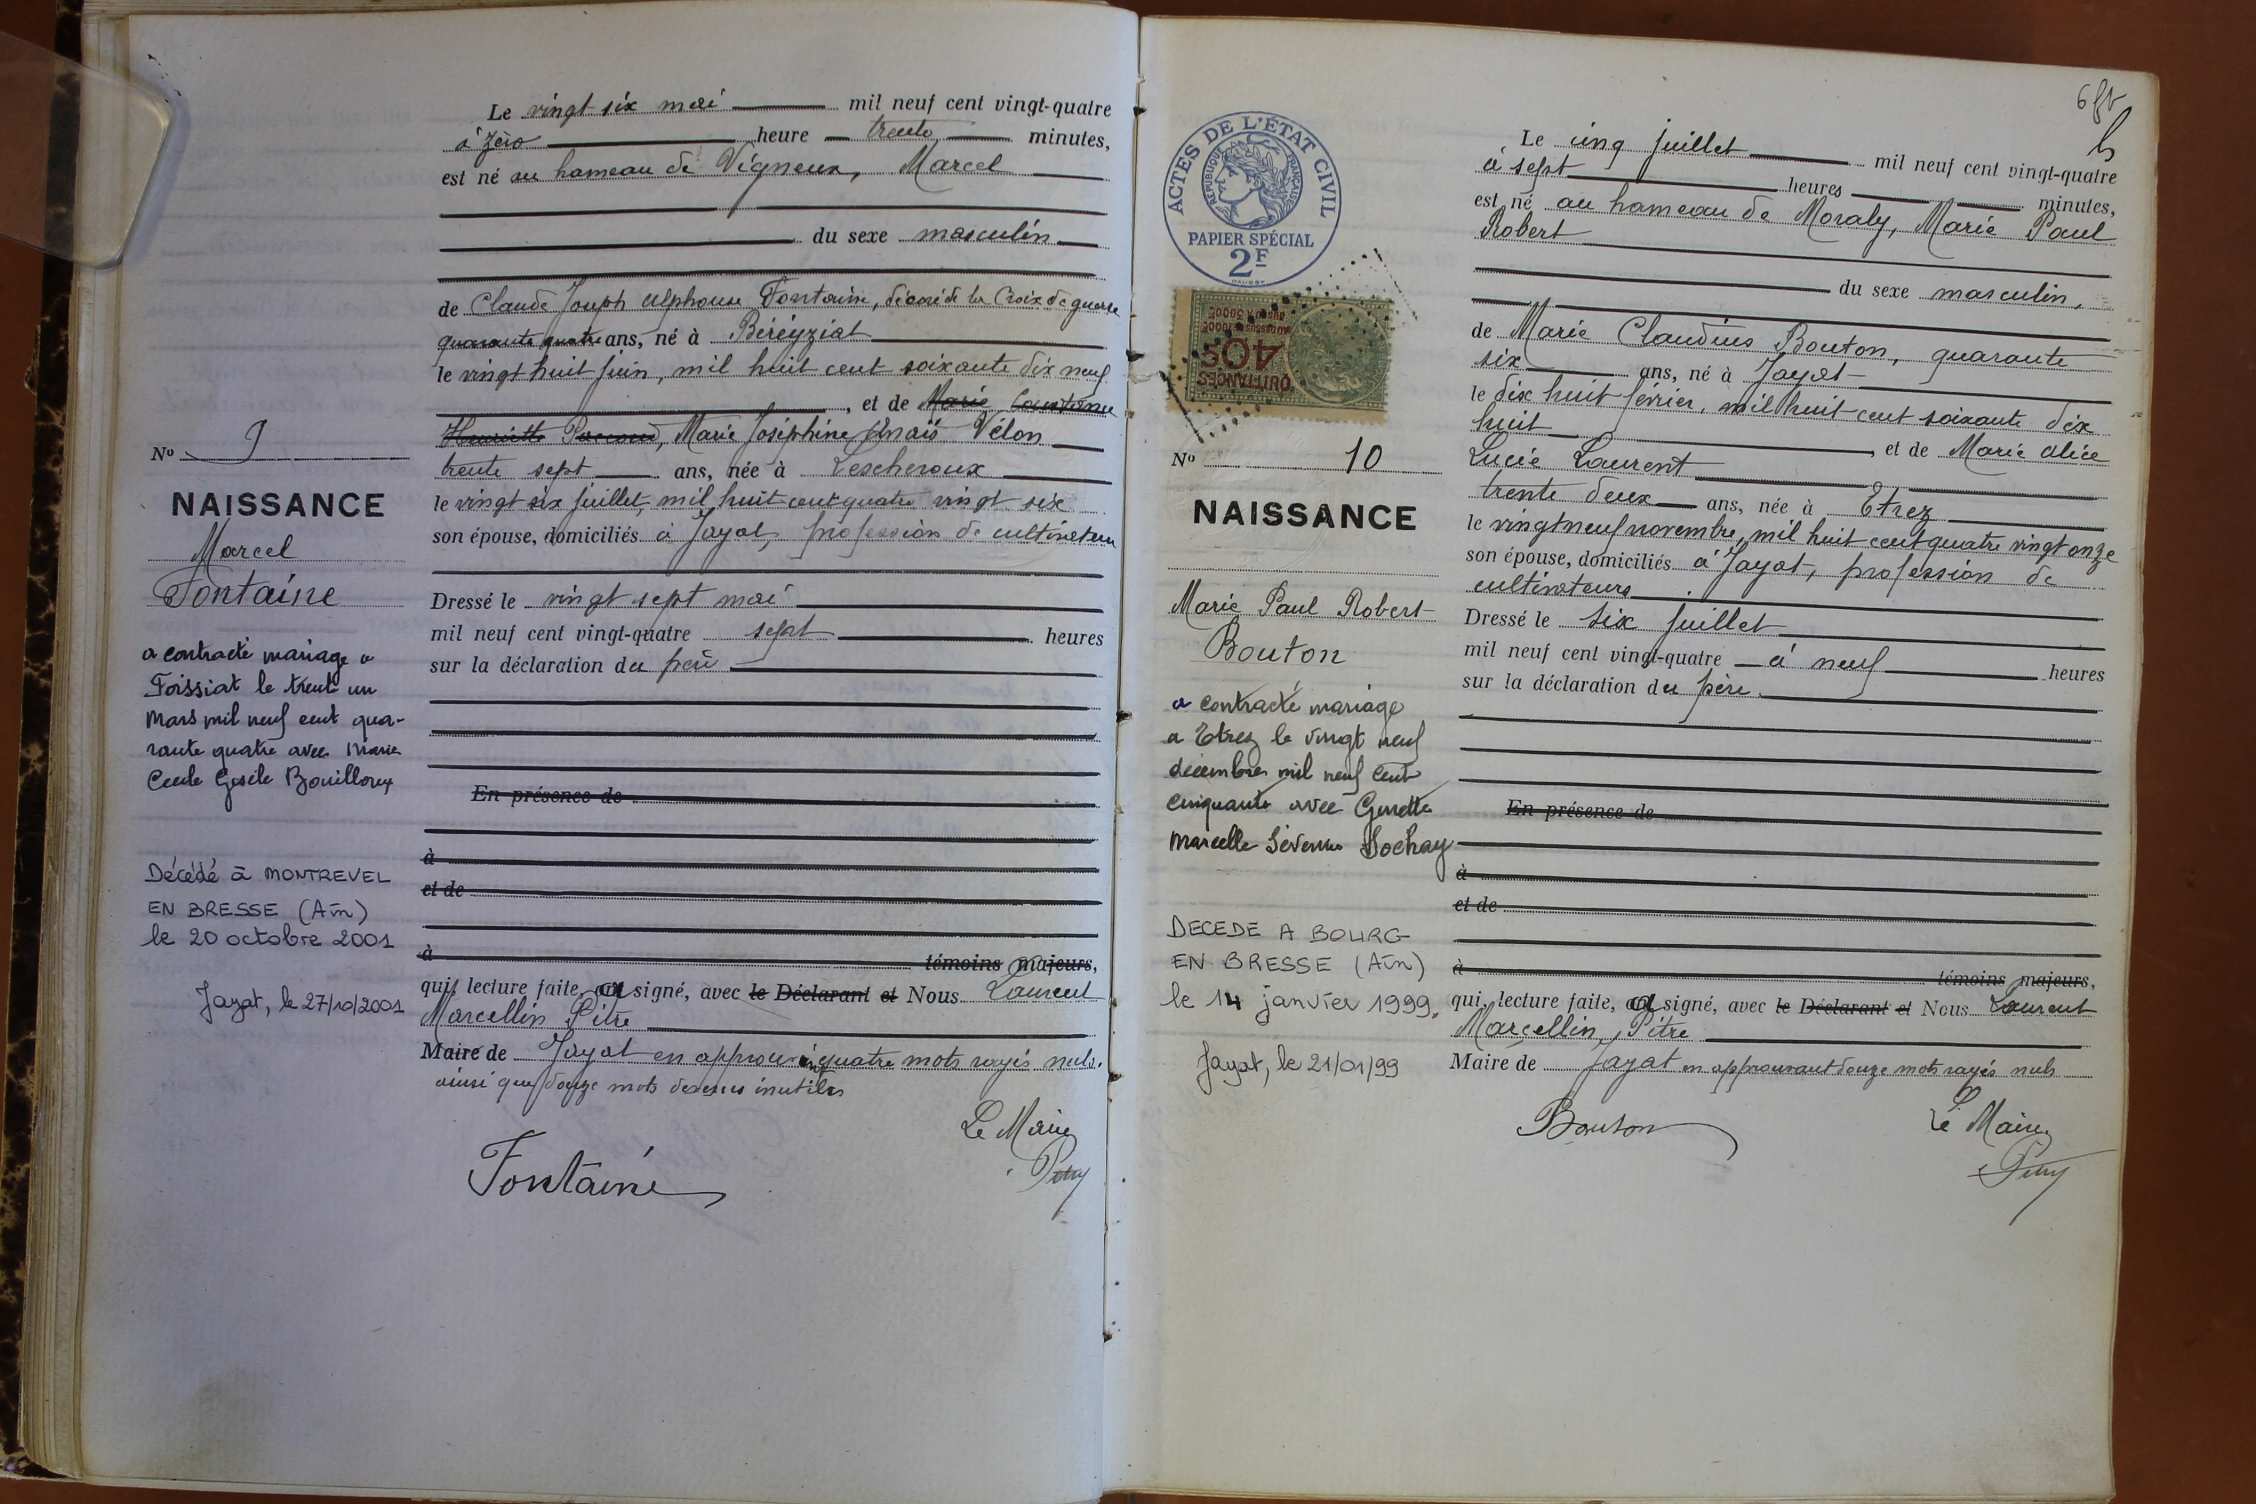 Le vingt six mai mil neuf cent vingt-quatre
à zéro heure trente minutes,
est né au hameau de Vigneux, Marcel
du sexe masculin
de Claude Joseph Alphonse Fontaine, décoré de la Croix de guerre
quarante quatre ans, né à Béréyziat
le vingt huit juin, mil huit cent soixante dix neuf
, et de Marie Constance
Henriette Paccoud, Marie Joséphine Anaïs Vélon
trente sept ans, née à Lescheroux
le vingt six juillet, mil huit cent quatre vingt six
son épouse, domiciliés à Jayat, profession de cultivateurs
Dressé le vingt sept mai
mil neuf cent vingt-quatre sept heures
sur la déclaration du père
En présence de
à
et de
à témoins majeurs,
qui, lecture faite, a signé, avec le Déclarant et Nous Laurent
Marcellin Pitre
Maire de Jayat en approuvant quatre mots rayés nuls.
ainsi que douze mots dessus inutiles
Le Maire
Fontaine
No 9
NAISSANCE
Marcel
Fontaine
a contracté mariage a
Foissiat le trente un
mars mil neuf cent qua-
rante quatre avec Marie
Cecile Gisèle Bouilloux
Décédé à MONTREVEL
EN BRESSE (Ain)
le 20 octobre 2001
Jayat, le 27/10/2001
ACTES DE L'ÉTAT CIVIL
RÉPUBLIQUE FRANÇAISE
PAPIER SPÉCIAL
2F
QUITTANCES
40c
Le cinq juillet mil neuf cent vingt-quatre
à sept heures minutes,
est né au hameau de Moraly, Marie Paul
Robert
du sexe masculin,
de Marie Claudius Bouton, quarante
six ans, né à Jayat
le dix huit février, mil huit cent soixante dix
huit et de Marie Alice
Lucie Laurent
trente deux ans, née à Etrez
le vingt neuf novembre, mil huit cent quatre vingt onze
son épouse, domiciliés à Jayat, profession de
cultivateurs
Dressé le six juillet
mil neuf cent vingt-quatre à neuf heures
sur la déclaration du père
En présence de
à
et de
à témoins majeurs,
qui, lecture faite, a signé, avec le Déclarant et Nous Laurent
Marcellin, Pitre
Maire de Jayat en approuvant douze mots rayés nuls
Bouton
Le Maire
No 10
NAISSANCE
Marie Paul Robert
Bouton
a contracté mariage
a Etrez le vingt neuf
décembre mil neuf cent
cinquante avec Ginette
Marcelle Sochay
DECEDE A BOURG
EN BRESSE (Ain)
le 14 janvier 1999.
Jayat, le 21/01/99